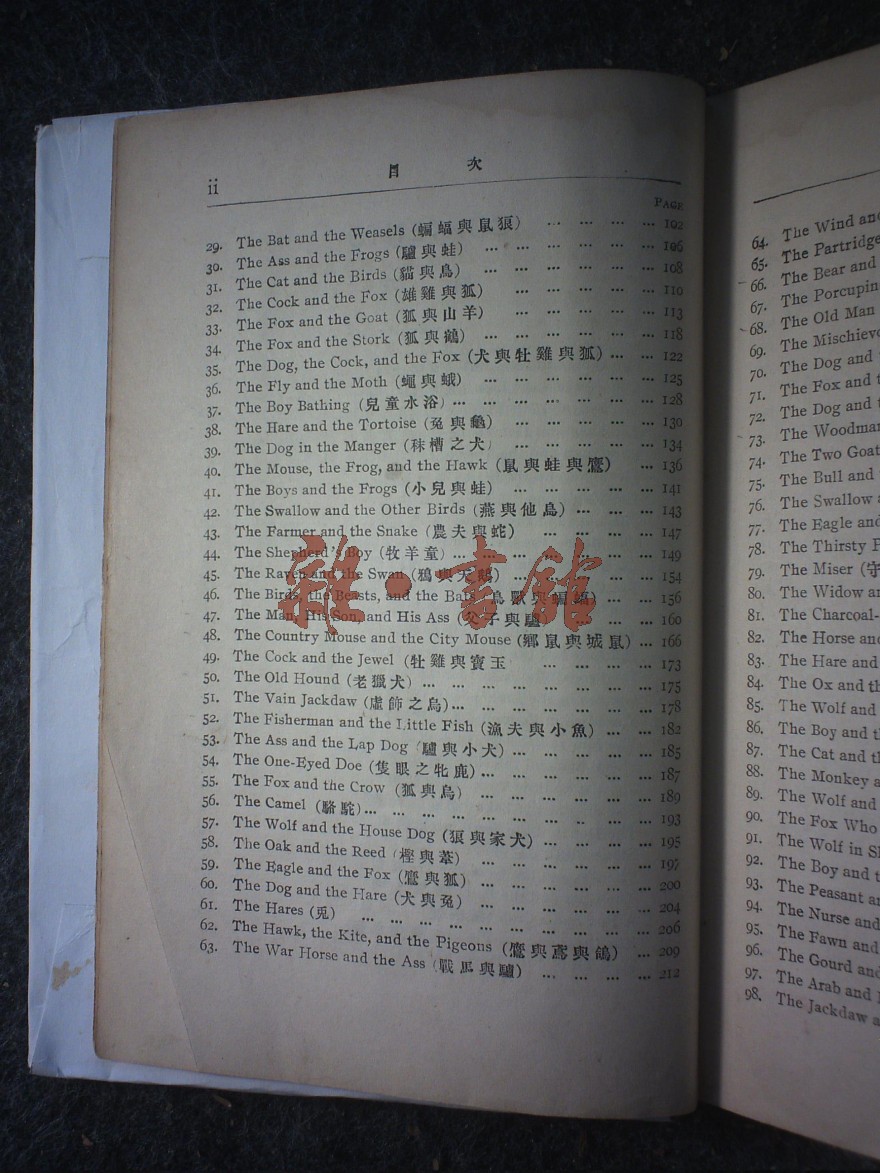 ii
目 次
PAGE
29. The Bat and the Weasels (蝙蝠與鼠狼) ... ... ... ... 102
30. The Ass and the Frogs (驢與蛙) ... ... ... ... ... 106
31. The Cat and the Birds (貓與鳥) ... ... ... ... ... 108
32. The Cock and the Fox (雄雞與狐) ... ... ... ... ... 110
33. The Fox and the Goat (狐與山羊) ... ... ... ... ... 113
34. The Fox and the Stork (狐與鶴) ... ... ... ... ... 118
35. The Dog, the Cock, and the Fox (犬與牡雞與狐) ... ... 122
36. The Fly and the Moth (蠅與蛾) ... ... ... ... ... 125
37. The Boy Bathing (兒童水浴) ... ... ... ... ... ... 128
38. The Hare and the Tortoise (兔與龜) ... ... ... ... 130
39. The Dog in the Manger (秣槽之犬) ... ... ... ... 134
40. The Mouse, the Frog, and the Hawk (鼠與蛙與鷹) ... 136
41. The Boys and the Frogs (小兒與蛙) ... ... ... ... 141
42. The Swallow and the Other Birds (燕與他鳥) ... ... 143
43. The Farmer and the Snake (農夫與蛇) ... ... ... 147
44. The Shepherd's Boy (牧羊童) ... ... ... ... ... 149
45. The Raven and the Swan (鴉與天鵝) ... ... ... ... 154
46. The Birds, the Beasts, and the Bats (鳥獸與蝙蝠) ... ... 156
47. The Man, His Son, and His Ass (父子與驢) ... ... ... 160
48. The Country Mouse and the City Mouse (鄉鼠與城鼠) ... 166
49. The Cock and the Jewel (牡雞與寶玉 ... ... ... ... 173
50. The Old Hound (老獵犬) ... ... ... ... ... ... 175
51. The Vain Jackdaw (虛飾之烏) ... ... ... ... ... 178
52. The Fisherman and the Little Fish (漁夫與小魚) ... ... 182
53. The Ass and the Lap Dog (驢與小犬) ... ... ... ... 185
54. The One-Eyed Doe (隻眼之牝鹿) ... ... ... ... ... 187
55. The Fox and the Crow (狐與烏) ... ... ... ... ... 189
56. The Camel (駱駝) ... ... ... ... ... ... ... 193
57. The Wolf and the House Dog (狼與家犬) ... ... ... 195
58. The Oak and the Reed (樫與葦) ... ... ... ... ... 197
59. The Eagle and the Fox (鷹與狐) ... ... ... ... ... 200
60. The Dog and the Hare (犬與兔) ... ... ... ... ... 204
61. The Hares (兎) ... ... ... ... ... ... ... 206
62. The Hawk, the Kite, and the Pigeons (鷹與鳶與鴿) ... 209
63. The War Horse and the Ass (戰馬與驢) ... ... ... ... 212
雜·書館
64. The Wind and
65. The Partridge
66. The Bear and
67. The Porcupin
68. The Old Man
69. The Mischiev
70. The Dog and
71. The Fox and t
72. The Dog and t
73. The Woodman
74. The Two Goat
75. The Bull and
76. The Swallow a
77. The Eagle and
78. The Thirsty P
79. The Miser (守
80. The Widow an
81. The Charcoal-
82. The Horse and
83. The Hare and
84. The Ox and th
85. The Wolf and
86. The Boy and th
87. The Cat and th
88. The Monkey a
89. The Wolf and
90. The Fox Who
91. The Wolf in Sh
92. The Boy and t
93. The Peasant an
94. The Nurse and
95. The Fawn and
96. The Gourd and
97. The Arab and
98. The Jackdaw a